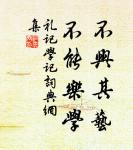 不興其藝
不能樂學
禮记学記詞典網
集